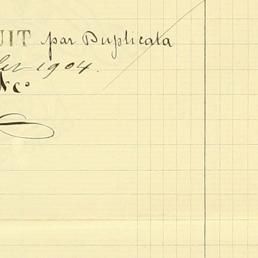 UIT par Duplicata
1904.
& Co